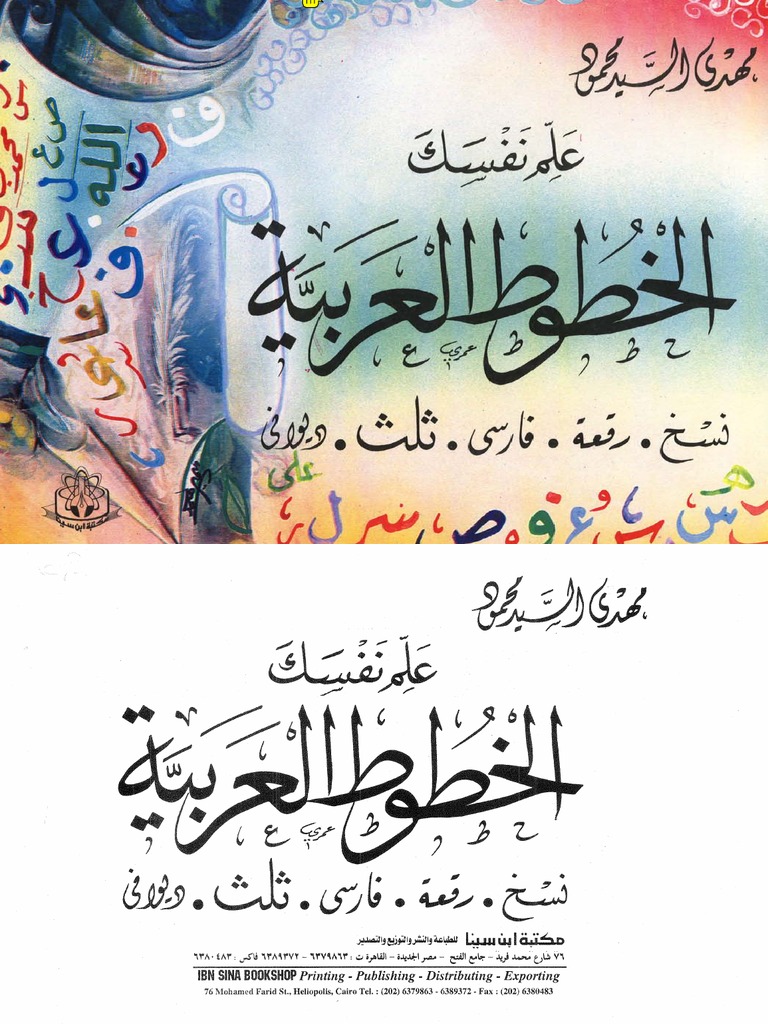 مهدى السيد محمود
عَلِّم نَفْسَكَ
الخطوط العربيّة
نسْخ . رقعة . فارسى . ثلث . ديوانى
الله
على
مكتبة ابن سينا
مهدى السيد محمود
عَلِّم نَفْسَكَ
الخطوط العربيّة
نسْخ . رقعة . فارسى . ثلث . ديوانى
مكتبة ابن سينا للطباعة والنشر والتوزيع والتصدير
٧٦ شارع محمد فريد - جامع الفتح - مصر الجديدة - القاهرة ت : ٦٣٧٩٨٦٣ - ٦٣٨٩٣٧٢ فاكس : ٦٣٨٠٤٨٣
IBN SINA BOOKSHOP Printing - Publishing - Distributing - Exporting
76 Mohamed Farid St., Heliopolis, Cairo Tel. : (202) 6379863 - 6389372 - Fax : (202) 6380483